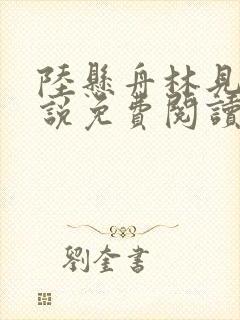 陸懸舟林見
說免費閱讀
劉奎書